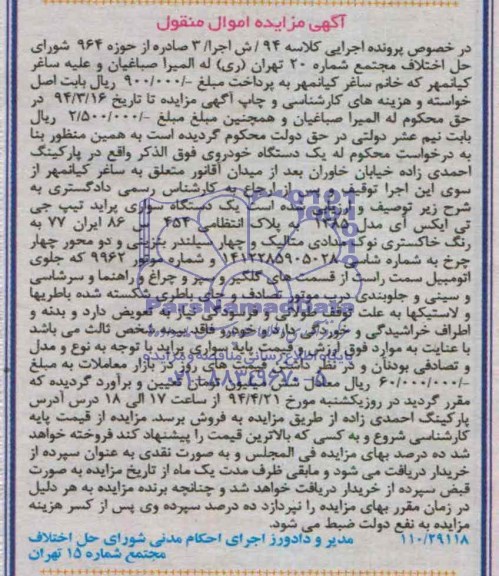 آگهی مزایده اموال منقول
در خصوص پرونده اجرایی کلاسه ۹۴ / ش اجرا/ ۳ صادره از حوزه ۹۶۴ شورای
حل اختلاف مجتمع شماره ۲۰ تهران (ری) له المیرا صباغیان و علیه ساغر
کیانمهر که خانم ساغر کیانمهر به پرداخت مبلغ -/۹۰۰/۰۰۰ ریال بابت اصل
خواسته و هزینه های کارشناسی و چاپ آگهی مزایده تا تاریخ ۹۴/۳/۱۶ در
حق محکوم له المیرا صباغیان و همچنین مبلغ مبلغ -/۲/۵۰۰/۰۰۰ ریال
بابت نیم عشر دولتی در حق دولت محکوم گردیده است به همین منظور بنا
به درخواست محکوم له یک دستگاه خودروی فوق الذکر واقع در پارکینگ
احمدی زاده خیابان خاوران بعد از میدان آقانور متعلق به ساغر کیانمهر از
سوی این اجرا توقیف و پس از ارجاع به کارشناس رسمی دادگستری به
شرح زیر توصیف و ارزیابی شده است یک دستگاه سواری پراید تیپ جی
تی ایکس آی مدل ۱۳۸۵ به پلاک انتظامی ۴۵۳ ۸۶ ایران ۷۷ به
رنگ خاکستری نوک مدادی متالیک و چهار سیلندر بنزینی و دو محور چهار
چرخ به شماره شاسی ۱۴۱۲۲۸۵۹۰۵۰۲۸ و شماره موتور ۹۹۶۲ که جلوی
اتومبیل سمت راست از قسمت های گلگیر و سپر و چراغ و راهنما و سرشاسی
و سینی و جلوبندی درب موتور تصادف و جای باطری شکسته شده باطریها
و لاستیکها به علت توقف طولانی و فرسودگی نیاز به تعویض دارد و بدنه و
اطراف خراشیدگی و خوردگی دارد و خودرو فاقد بیمه شخص ثالث می باشد
با عنایت به موارد فوق ارزش و قیمت پایه سواری پراید با توجه به نوع و مدل
و تصادفی بودنآن و در نظر داشتن قیمت های روز در بازار معاملات به مبلغ
-/۶۰/۰۰۰/۰۰۰ ریال معادل شش میلیون تومان تعیین و برآورد گردیده که
مقرر گردید در روزیکشنبه مورخ ۹۴/۴/۲۱ از ساعت ۱۷ الی ۱۸ درس آدرس
پارکینگ احمدی زاده از طریق مزایده به فروش برسد. مزایده از قیمت پایه
کارشناسی شروع و به کسی که بالاترین قیمت را پیشنهاد کند فروخته خواهد
شد ده درصد بهای مزایده فی المجلس و به صورت نقدی به عنوان سپرده از
خریدار دریافت می شود و مابقی ظرف مدت یک ماه از تاریخ مزایده به صورت
قبض سپرده از خریدار دریافت خواهد شد و چنانچه برنده مزایده به هر دلیل
در زمان مقرر بهای مزایده را نپردازد ده درصد سپرده وی پس از کسر هزینه
مزایده به نفع دولت ضبط می شود.
۱۱۰/۲۹۱۱۸ مدیر و دادورز اجرای احکام مدنی شورای حل اختلاف
مجتمع شماره ۱۵ تهران